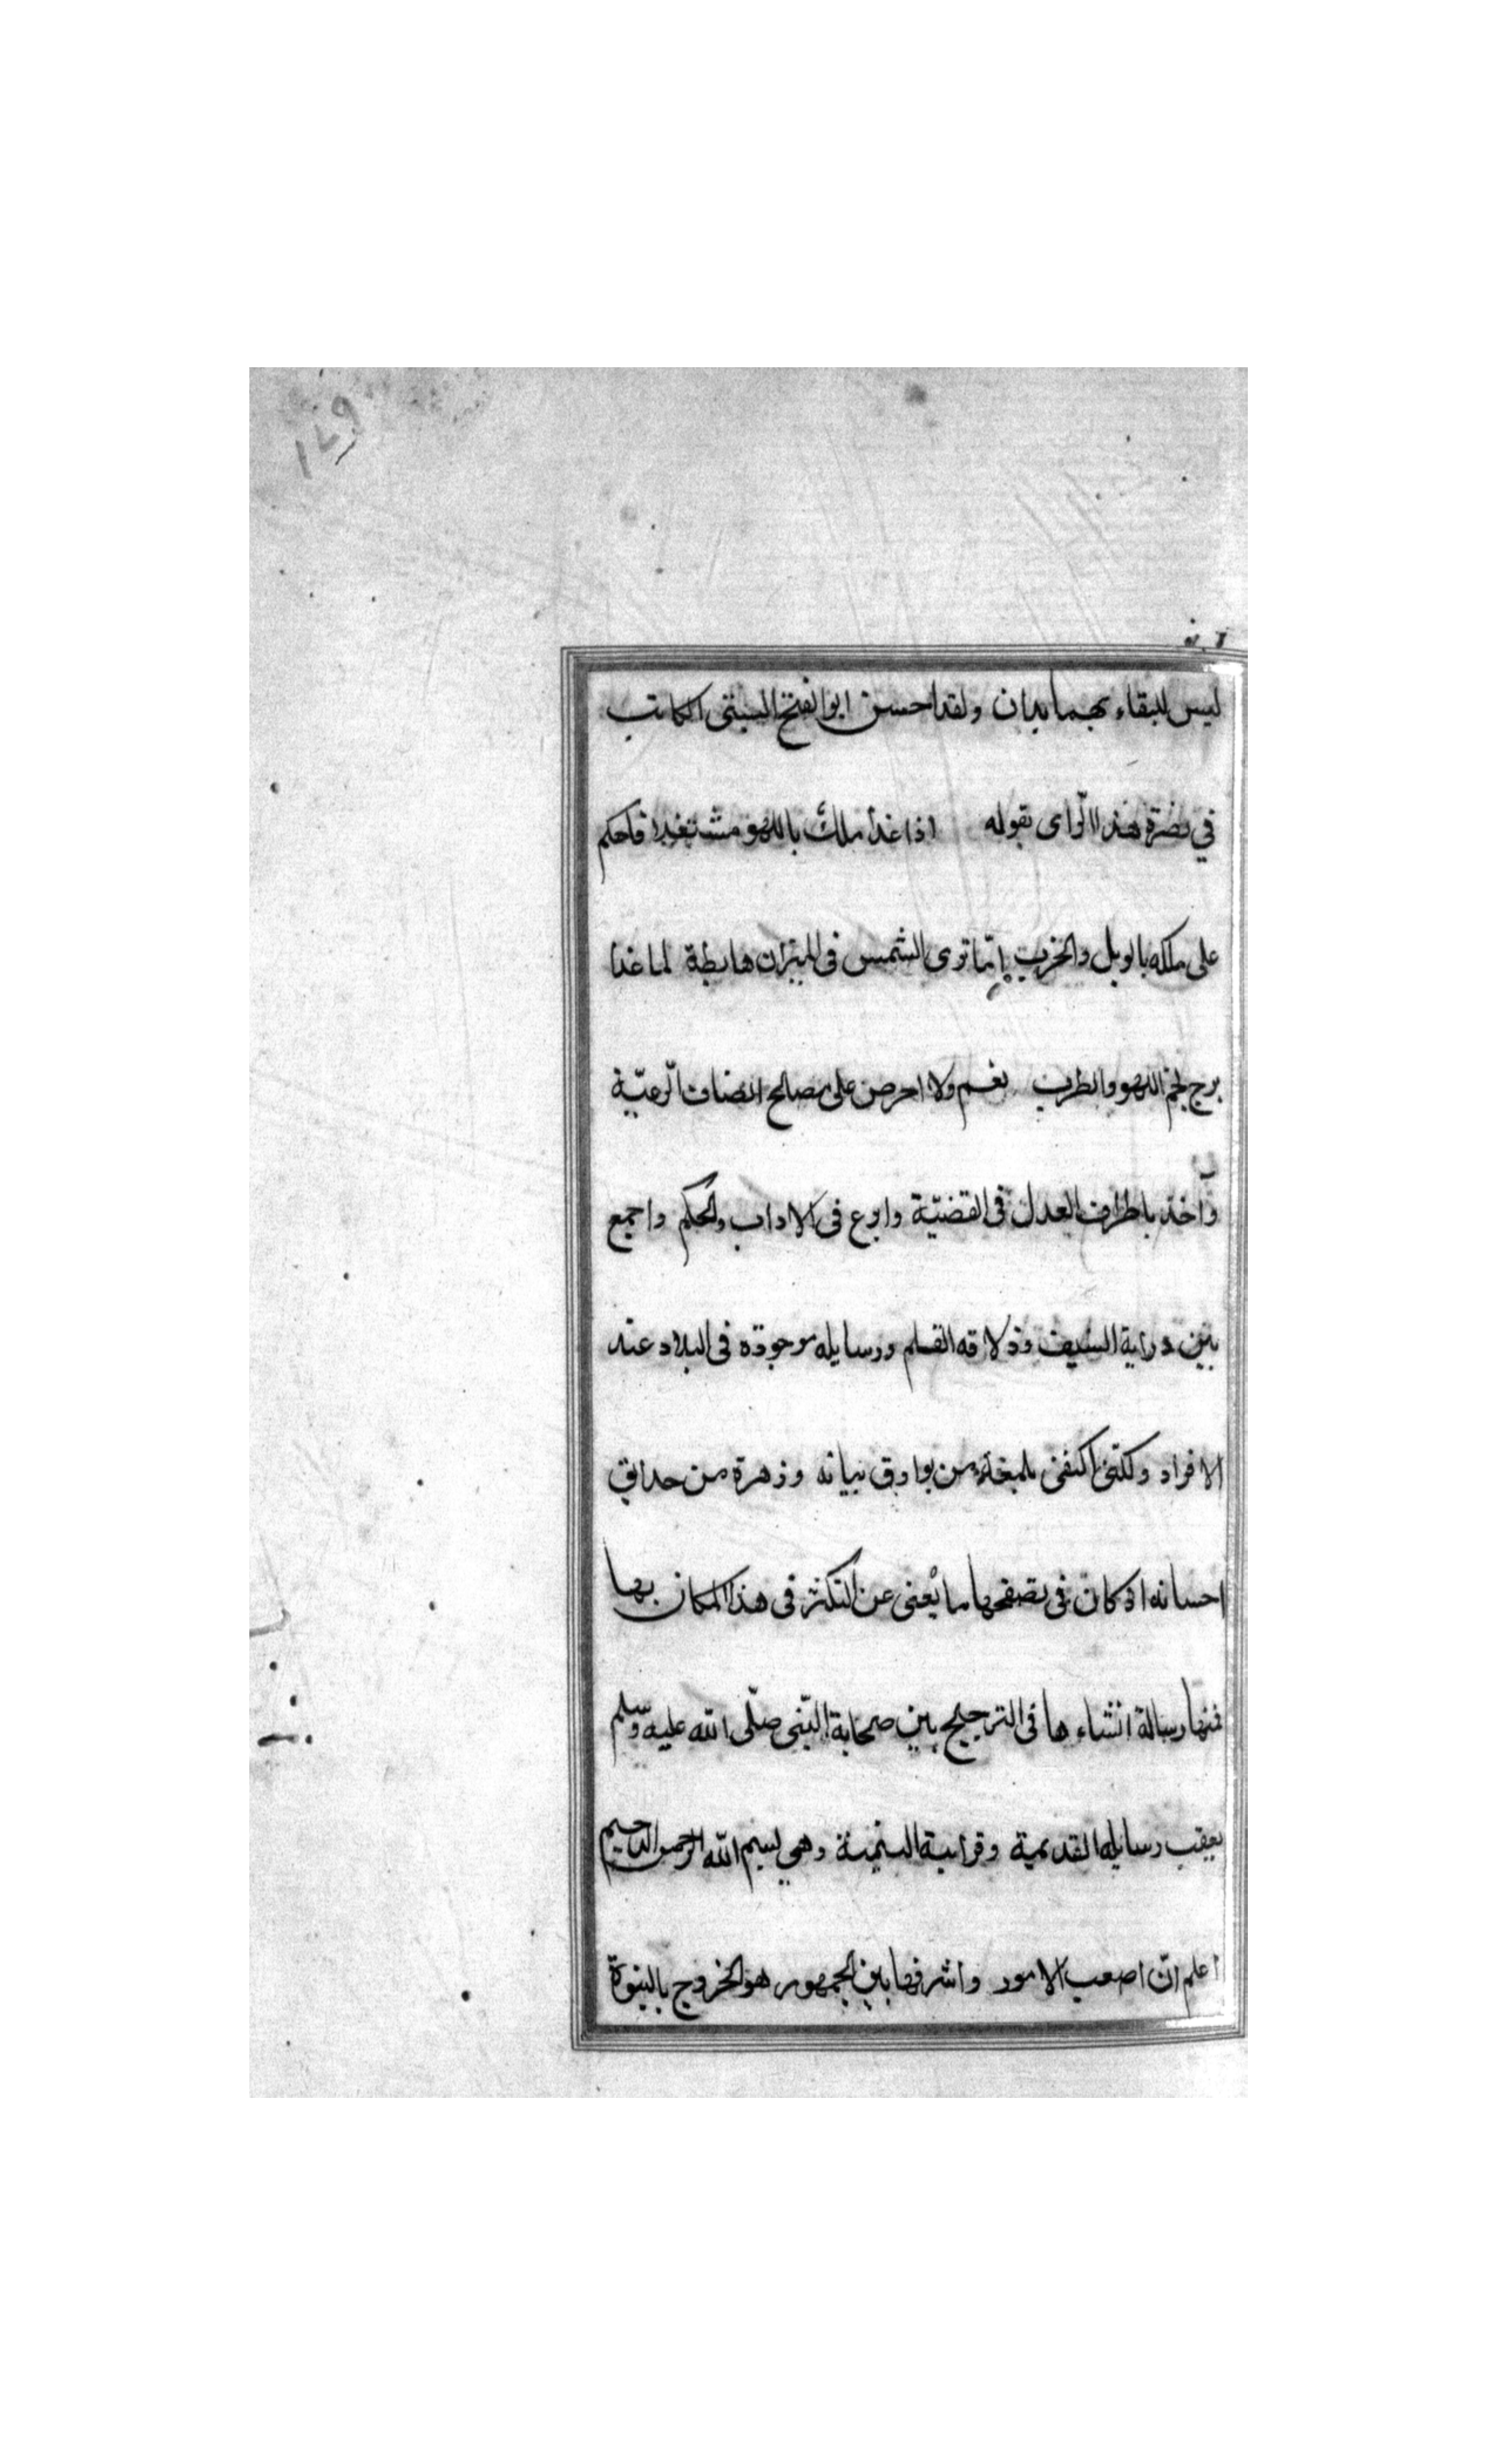 ليس للبقاء بهما يدان ولقد احسن ابو الفتح البستى الكاتب
في نضرة هذا الراى بقوله اذا غدا ملك باللهو مشتغلا فاحكم
على ملكه بالويل والخرب اما ترى الشمس فى الميزان هابطة لما غدا
برج نجم اللهو والطرب نعم ولا احرص على مصالح انضاف الرعيّة
وآخذ باطراف العدل فى القضيّة وابرع فى الاداب والحكم واجمع
بين دراية السيف وذلاقه القلم ورسايله موجودة فى البلاد عند
الافراد ولكنّى اكتفى بلمعة من بوارق بيانه وزهرة من حدايق
احسانه اذ كان فى تصفحها ما يُغنى عن التكثر فى هذا المكان بها
فمنها رسالة انشاءها فى الترجيح بين صحابة النّبى صلّى الله عليه وسلم
بعقب رسايله القديمة وقرايبه اليتيمة وهى بسم الله الرحمن الرحيم
اعلم انّ اصعب الامور واشرفها بين الجمهور هو الخروج بالنبوّة